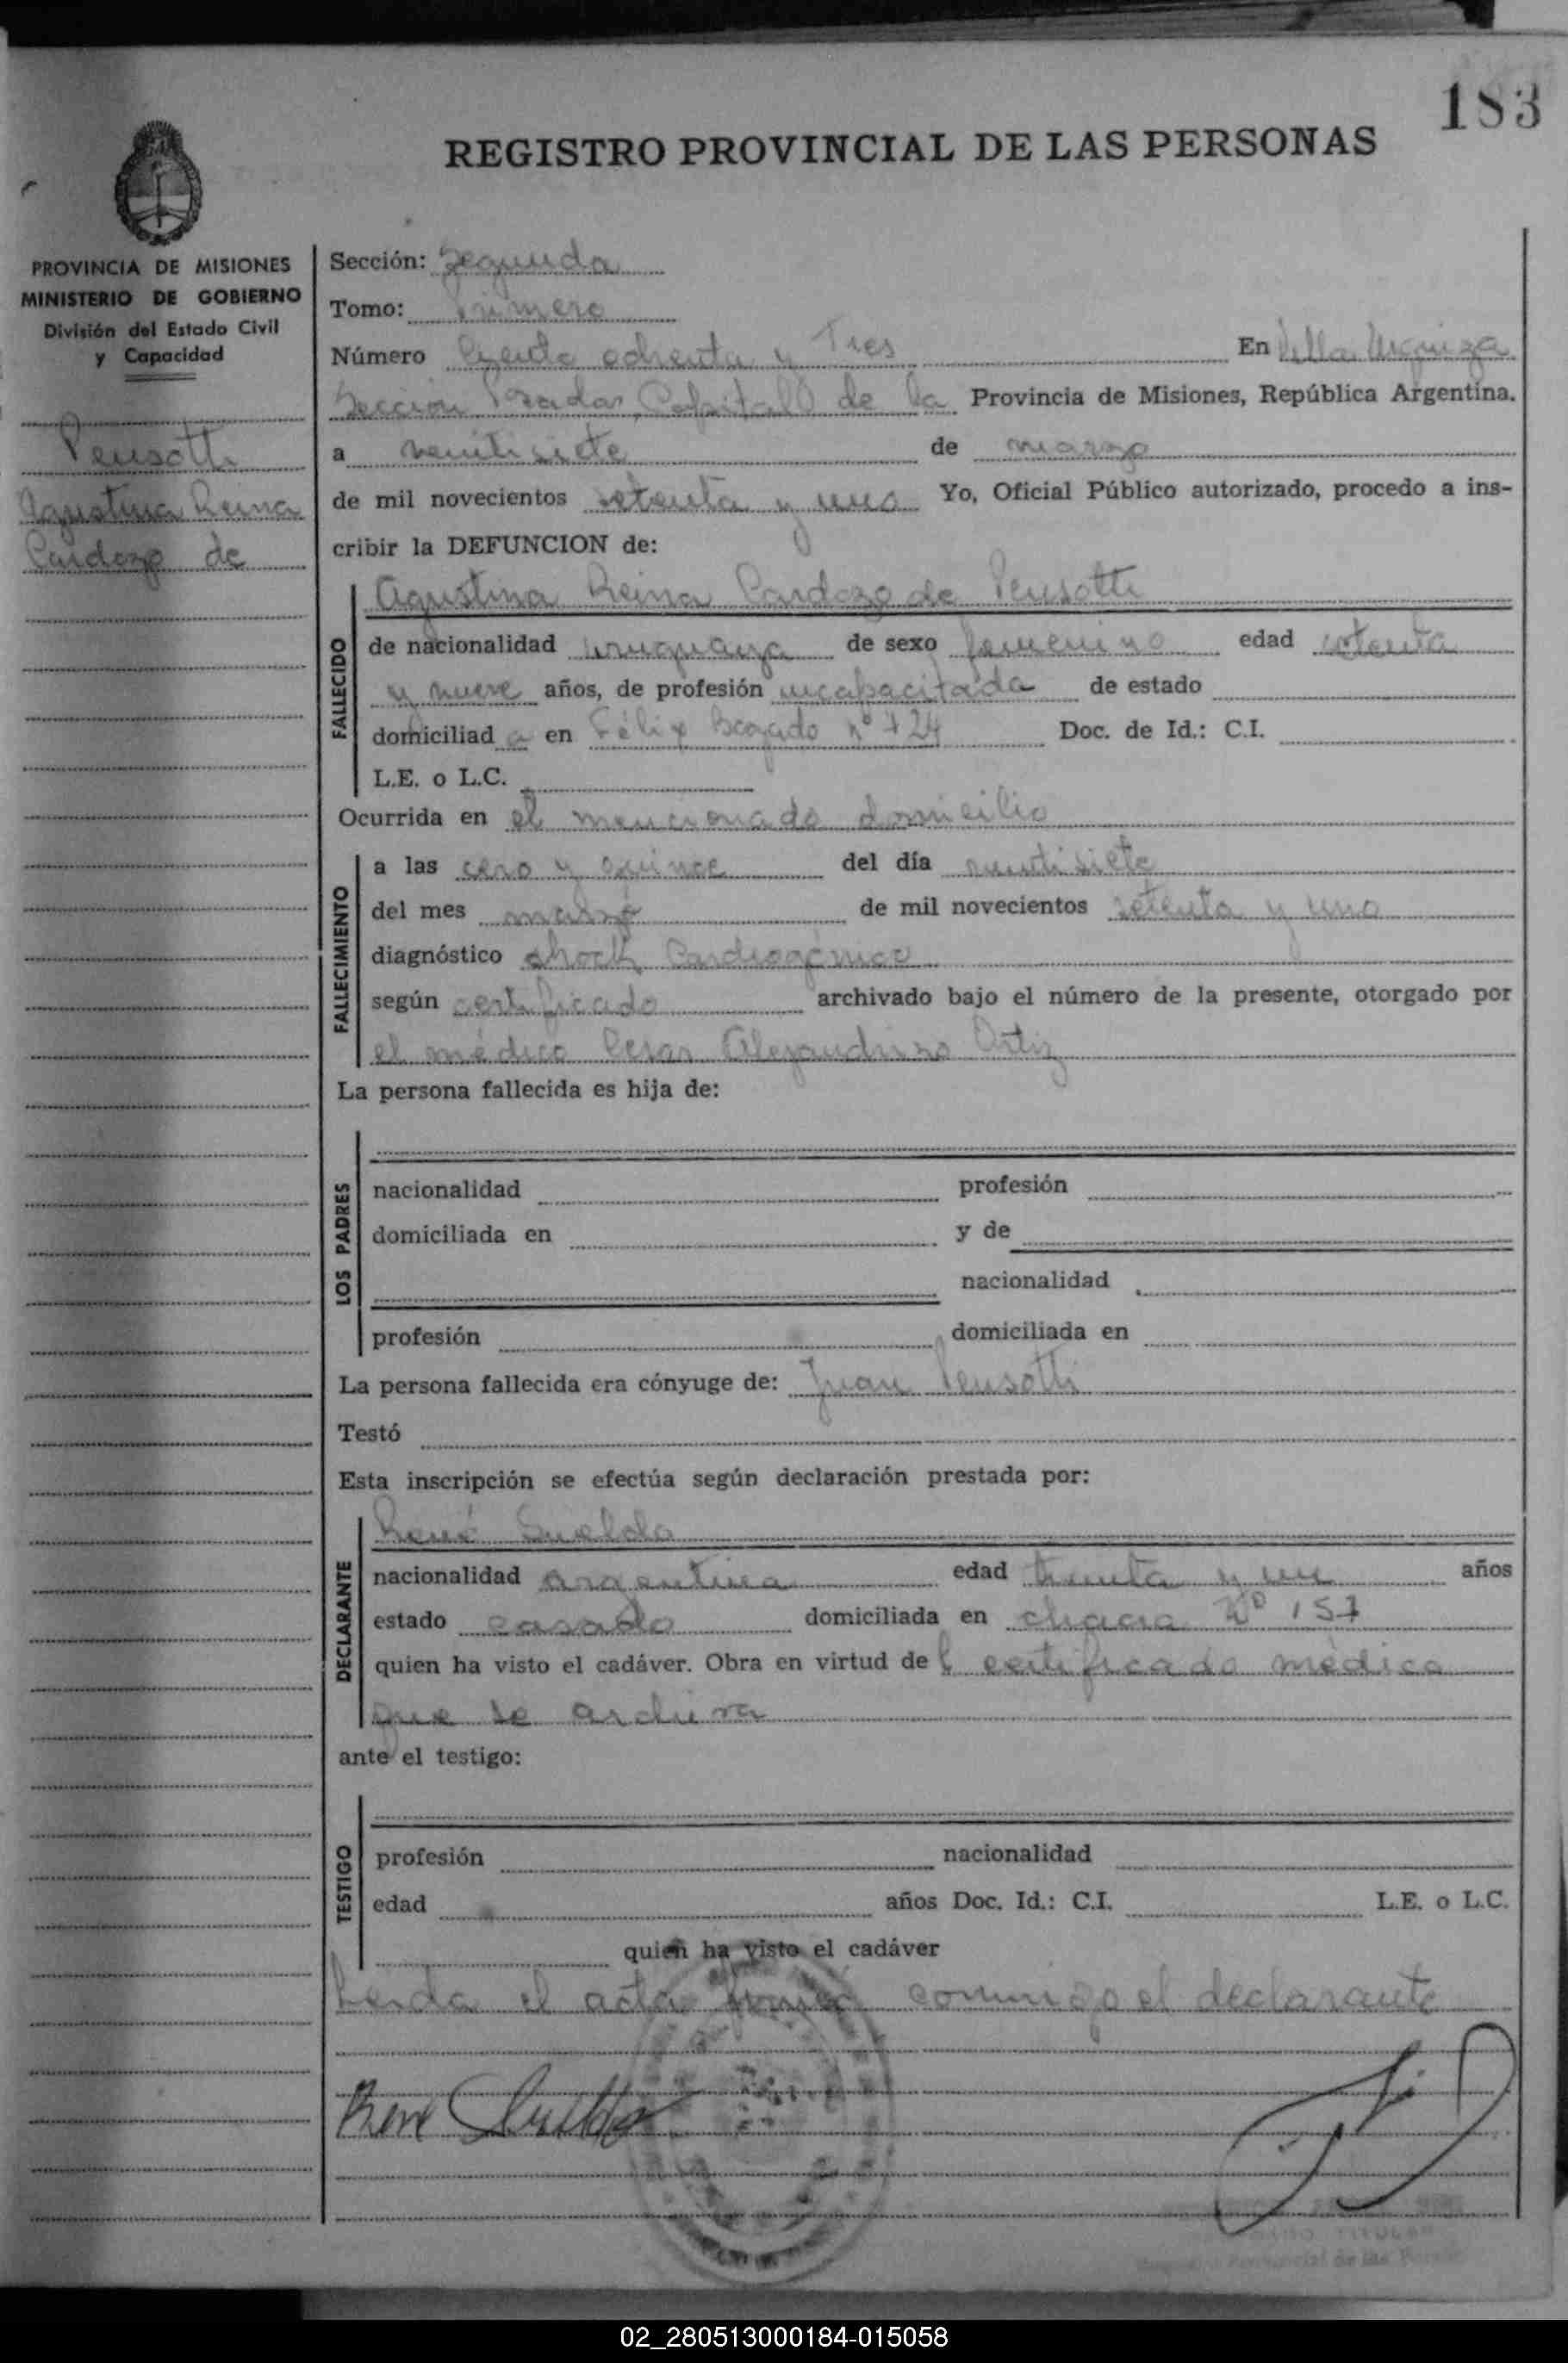 183
REGISTRO PROVINCIAL DE LAS PERSONAS
PROVINCIA DE MISIONES
MINISTERIO DE GOBIERNO
División del Estado Civil
y Capacidad
Peusotti
Agustina Reina
Cardozo de
Sección: Segunda
Tomo: Primero
Número Ciento ochenta y Tres En Villa Urquiza
Sección Posadas, Capital de la Provincia de Misiones, República Argentina.
a veintisiete de marzo
de mil novecientos setenta y uno Yo, Oficial Público autorizado, procedo a ins-
cribir la DEFUNCION de:
FALLECIDO
Agustina Reina Cardozo de Peusotti
de nacionalidad uruguaya de sexo femenino edad setenta
y nueve años, de profesión incapacitada de estado
domiciliad a en Félix Bogado Nº 724 Doc. de Id.: C.I.
L.E. o L.C.
Ocurrida en el mencionado domicilio
FALLECIMIENTO
a las cero y quince del día veintisiete
del mes marzo de mil novecientos setenta y uno
diagnóstico shock Cardiogénico
según certificado archivado bajo el número de la presente, otorgado por
el médico Cesar Alejandrino Ortiz
La persona fallecida es hija de:
LOS PADRES
nacionalidad profesión
domiciliada en y de
nacionalidad
profesión domiciliada en
La persona fallecida era cónyuge de: Juan Peusotti
Testó
Esta inscripción se efectúa según declaración prestada por:
DECLARANTE
René Sueldo
nacionalidad argentina edad treinta y un años
estado casado domiciliada en chacra Nº 157
quien ha visto el cadáver. Obra en virtud de l certificado médico
que se archiva
ante el testigo:
TESTIGO
profesión nacionalidad
edad años Doc. Id.: C.I. L.E. o L.C.
quien ha visto el cadáver
Leida el acta firma conmigo el declarante
Rene Sueldo
TITULAR
Provincial de las
02_280513000184-015058